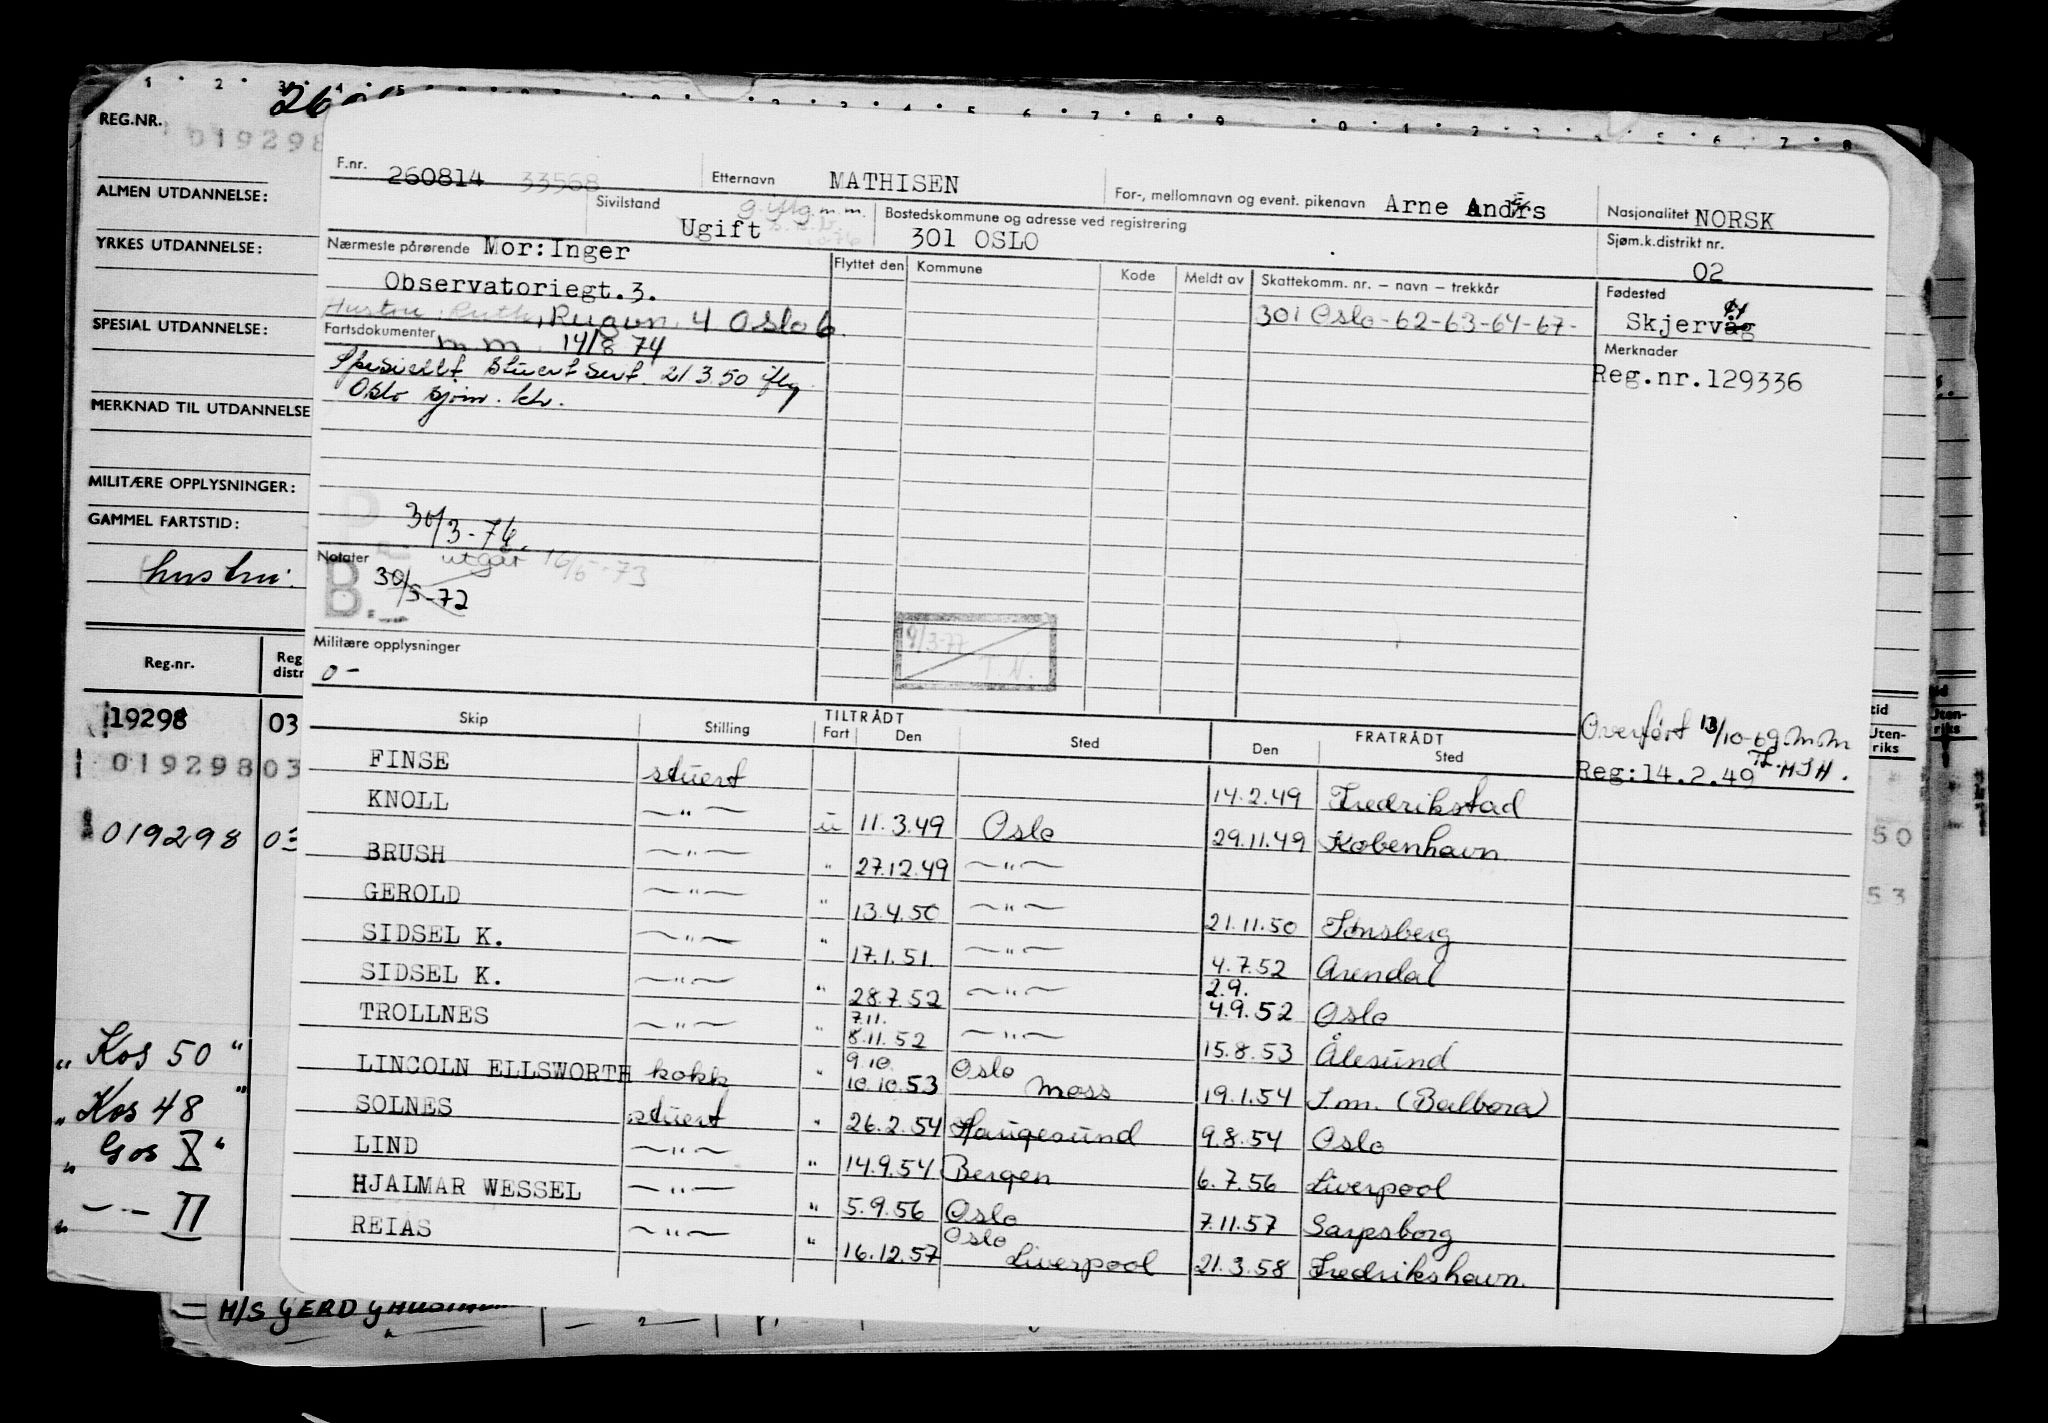 REG.NR.
019298
ALMEN UTDANNELSE:
YRKES UTDANNELSE:
SPESIAL UTDANNELSE:
MERKNAD TIL UTDANNELSE
MILITÆRE OPPLYSNINGER:
GAMMEL FARTSTID:
Reg.nr.
19298 03
019298 03
019298 03
„ Kos 50 "
„ Kos 48 "
„ Gos X "
„ — - — II
F.nr. 260814 33568 Etternavn MATHISEN For-, mellomnavn og event. pikenavn Arne Andrs Nasjonalitet NORSK
Sivilstand Ugift Bostedskommune og adresse ved registrering 301 OSLO Sjøm.k.distrikt nr. 02
Nærmeste pårørende Mor: Inger Flyttet den Kommune Kode Meldt av Skattekomm. nr. – navn – trekkår Fødested
Observatoriegt.3. 301 Oslo - 62-63-64-67- Skjervåg
Hustru: Ruth, Rugvn. 4 Oslo 6 Merknader
Fartsdokumenter m.m. 14/8 74 Reg.nr.129336
Spesiellt Stuert Sert. 21.3.50 iflg
Oslo sjøm. ktr.
30/3-76.
Notater utgår 16/5-73
B. 30/5-72
9/3-77
T.N.
Militære opplysninger
0 -
Overført 13/10-69 m.m
Reg:14.2.49
Skip Stilling TILTRÅDT Fart Den Sted FRATRÅDT Den Sted
FINSE stuert 14.2.49 Fredrikstad
KNOLL —"— u 11.3.49 Oslo 29.11.49 København
BRUSH —"— " 27.12.49 —"—
GEROLD —"— " 13.4.50 —"— 21.11.50 Tønsberg
SIDSEL K. —"— " 17.1.51 —"— 4.7.52 Arendal
SIDSEL K. —"— " 28.7.52 —"— 2.9. 4.9.52 Oslo
TROLLNES —"— " 7.11. 8.11.52 —"— 15.8.53 Ålesund
LINCOLN ELLSWORTH kokk " 9.10. 10.10.53 Oslo Moss 19.1.54 S.m. (Balboa)
SOLNES stuert " 26.2.54 Haugesund 9.8.54 Oslo
LIND —"— " 14.9.54 Bergen 6.7.56 Liverpool
HJALMAR WESSEL —"— " 5.9.56 Oslo 7.11.57 Sarpsborg
REIAS —"— " 16.12.57 Oslo Liverpool 21.3.58 Fredrikshavn.
M/S GERD